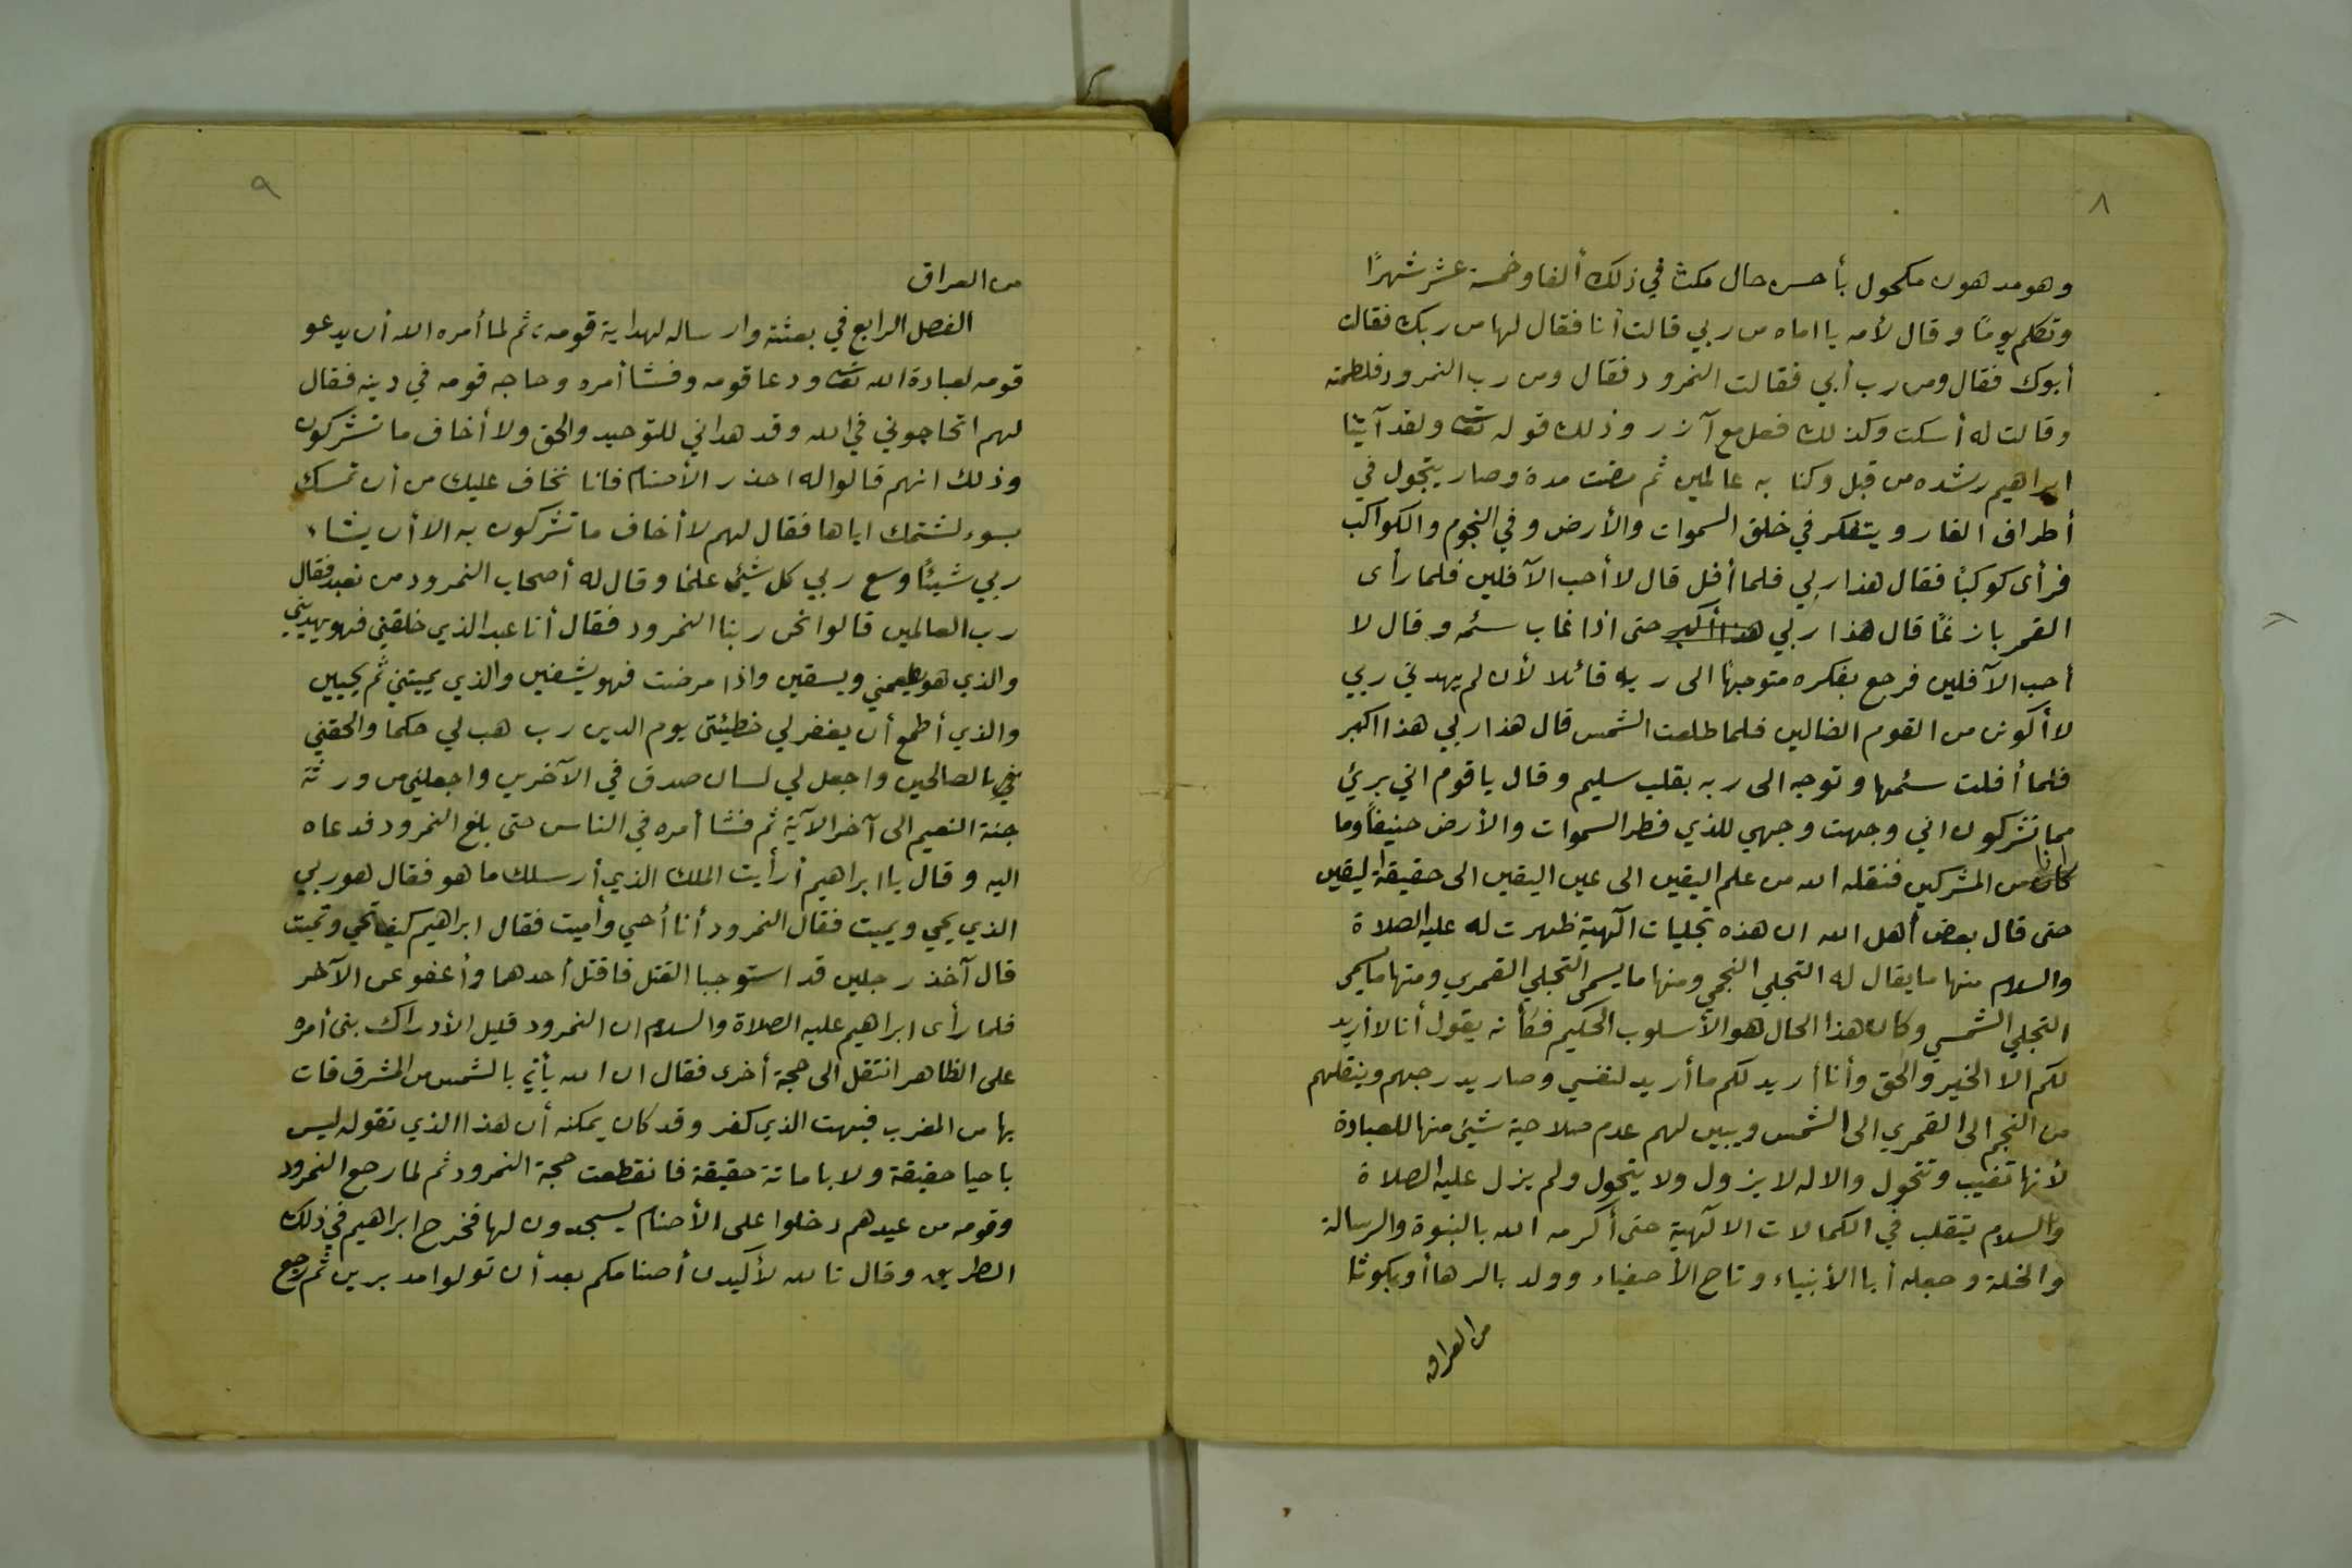 ٨
وهو مدهون مكحول بأحسن حال مكث في ذلك ألفا وخمسة عشر شهرًا
وتكلم يومًا وقال لأمه يا اماه من ربي قالت أنا فقال لها من ربك فقالت
أبوك فقال ومن رب أبي فقالت النمرود فقال ومن رب النمرود فلطمته
وقالت له أسكت وكذلك فعل مع آزر وذلك قوله تعالى ولقد آتينا
ابراهيم رشده من قبل وكنا به عالمين ثم مضت مدة وصار يتجول في
أطراف الغار ويتفكر في خلق السموات والأرض وفي النجوم والكواكب
فرأى كوكبًا فقال هذا ربي فلما أفل قال لا أحب الآفلين فلما رأى
القمر بازغًا قال هذا ربي هذا أكبر حتى اذا غاب سئمه وقال لا
أحب الآفلين فرجع بفكره متوجهًا الى ربه قائلا لأن لم يهدني ربي
لا أكونن من القوم الضالين فلما طلعت الشمس قال هذا ربي هذا اكبر
فلما أفلت سئمها وتوجه الى ربه بقلب سليم وقال يا قوم اني بريئ
مما تشركون اني وجهت وجهي للذي فطر السموات والأرض حنيفًا وما
انا
كان من المشركين فنقله الله من علم اليقين الى عين اليقين الى حقيقة اليقين
حتى قال بعض أهل الله ان هذه تجليات الٓهية ظهرت له عليه الصلاة
والسلام منها ما يقال له التجلي النجمي ومنها ما يسمى التجلي القمري ومنها ما يسمى
التجلي الشمسي وكان هذا الحال هو الأسلوب الحكيم فكأنه يقول أنا لا أريد
لكم الا الخير والحق وأنا أريد لكم ما أريد لنفسي وصار يدرجهم وينقلهم
من النجم الى القمري الى الشمس ويبين لهم عدم صلاحية شيئ منها للعبادة
لأنها تغيب وتتحول والاله لا يزول ولا يتحول ولم يزل عليه الصلاة
والسلام يتقلب في الكمالات الالٓهية حتى أكرمه الله بالنبوة والرسالة
والخلة وجعله أبا الأنبياء وتاج الأصفياء وولد بالرها أو بكوثا
من العراق
٩
من العراق
الفصل الرابع في بعثته وارساله لهداية قومه، ثم لما أمره الله أن يدعو
قومه لعبادة الله تعالى ودعا قومه وفشا أمره وحاجه قومه في دينه فقال
لهم اتحاجوني في الله وقد هداني للتوحيد والحق ولا أخاف ما تشركون
وذلك انهم قالوا له احذر الأصنام فانا نخاف عليك من أن تمسك
بسوء لشتمك اياها فقال لهم لا أخاف ما تشركون به الا أن يشاء
ربي شيئًا وسع ربي كل شيئ علمًا وقال له أصحاب النمرود من تعبد فقال
رب العالمين قالوا نحن ربنا النمرود فقال أنا عبد الذي خلقني فهو يهديني
والذي هو يطعمني ويسقين واذا مرضت فهو يشفين والذي يميتني ثم يحيين
والذي أطمع أن يغفر لي خطيئتي يوم الدين رب هب لي حكما والحقني
بالصالحين واجعل لي لسان صدق في الآخرين واجعلني من ورثة
جنة النعيم الى آخر الآية ثم فشا أمره في الناس حتى بلغ النمرود فدعاه
اليه وقال يا ابراهيم أرأيت الملك الذي أرسلك ما هو فقال هو ربي
الذي يحي ويميت فقال النمرود أنا أحيي وأميت فقال ابراهيم كيف تحي وتميت
قال آخذ رجلين قد استوجبا القتل فاقتل أحدهما وأعفو عن الآخر
فلما رأى ابراهيم عليه الصلاة والسلام ان النمرود قليل الأدراك بنى أمره
على الظاهر انتقل الى حجة أخرى فقال ان الله يأتي بالشمس من المشرق فات
بها من المغرب فبهت الذي كفر وقد كان يمكنه أن هذا الذي تقوله ليس
باحيا حقيقة ولا باماتة حقيقة فانقطعت حجة النمرود ثم لما رجع النمرود
وقومه من عيدهم دخلوا على الأصنام ليسجدون لها فخرج ابراهيم في ذلك
الطريق وقال تالله لأكيدن أصنامكم بعد أن تولوا مدبرين ثم رجع